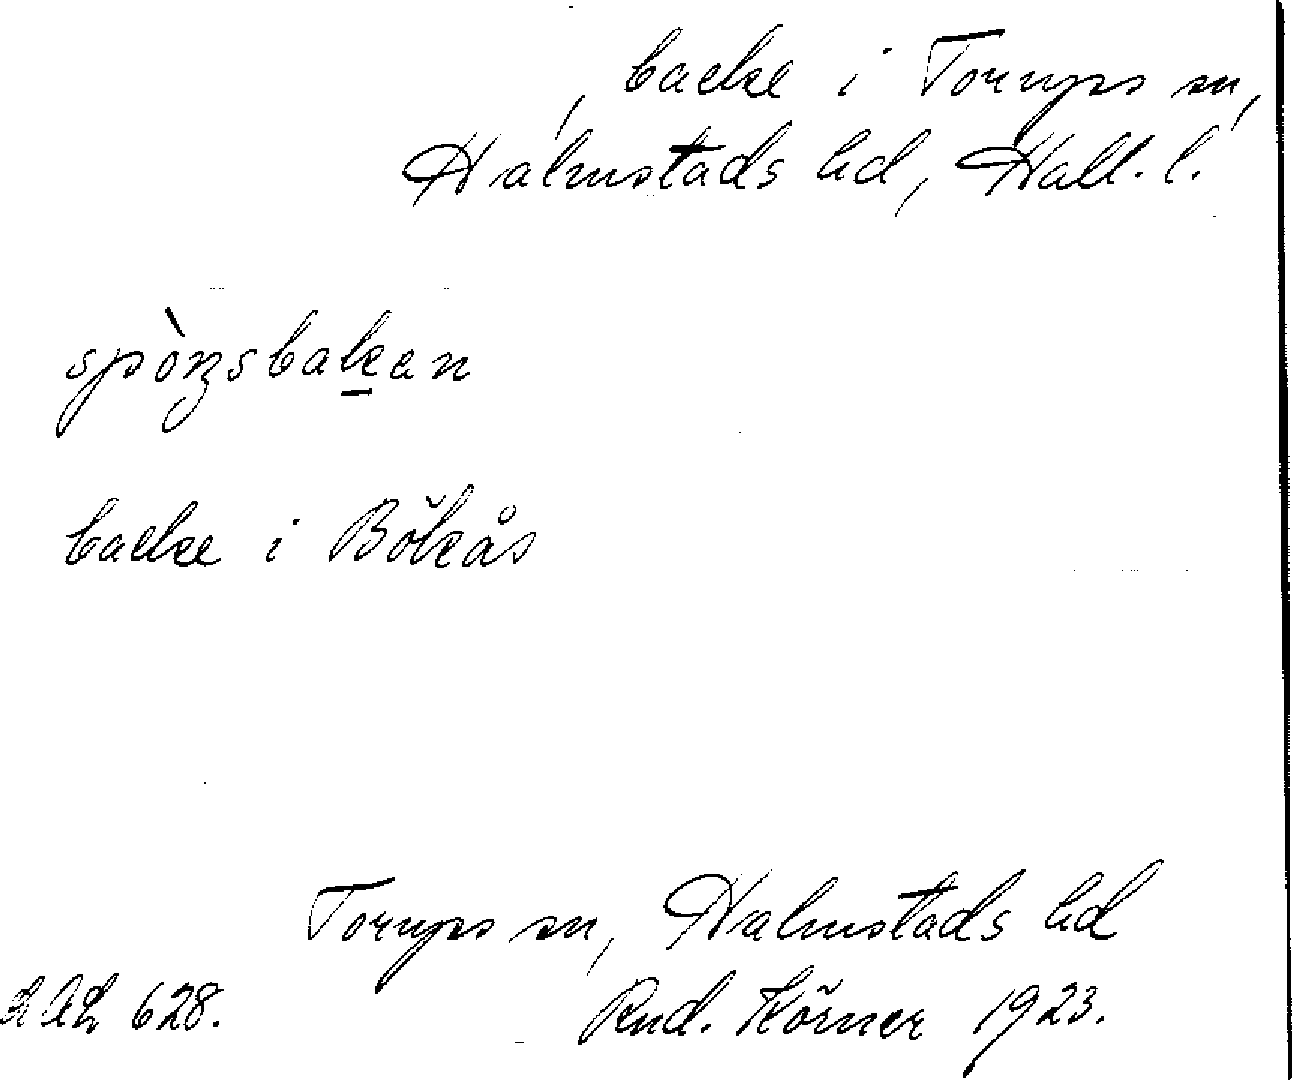 , backe i Torups sn,
Halmstads hd, Hall. l.
spòrʒsbak̲en
backe i Bökås
Torups sn, Halmstads hd
628. Rud. Körner 1923.